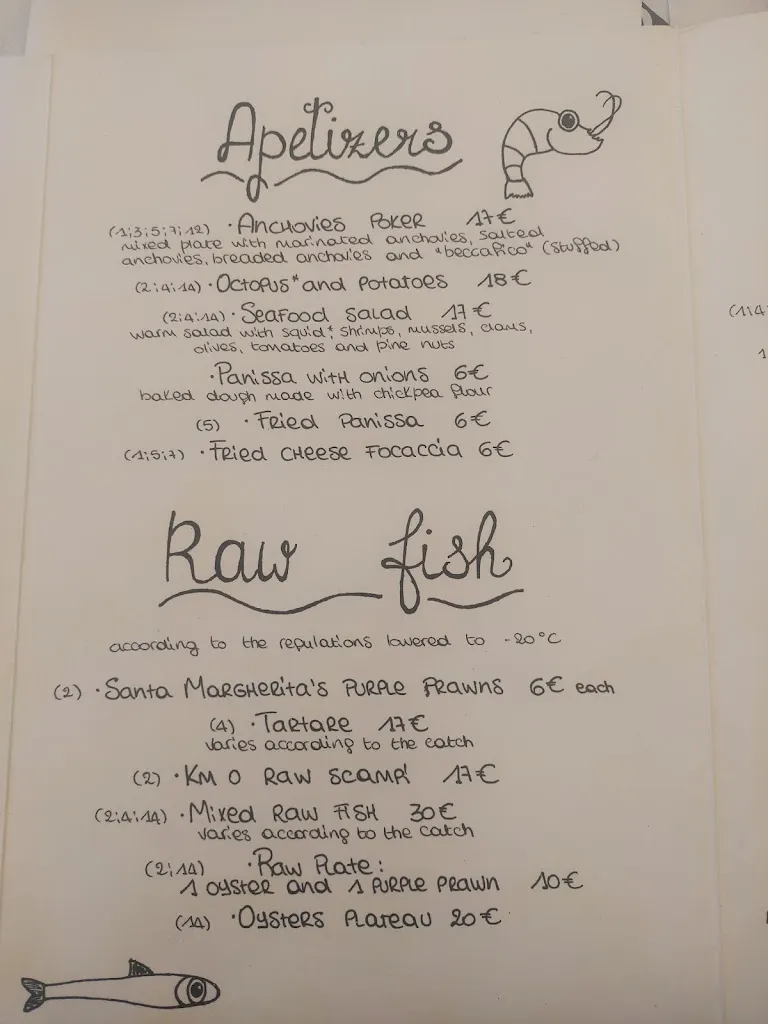 Apetizers
(1;3;5;7;12) · Anchovies Poker 17€
mixed plate with marinated anchovies, salted
anchovies, breaded anchovies and "beccafico" (stuffed)
(2;4;14) · Octopus* and potatoes 18€
(2;4;14) · Seafood salad 17€
warm salad with squid*, shrimps, mussels, clams,
olives, tomatoes and pine nuts
· Panissa with onions 6€
baked dough made with chickpea flour
(5) · Fried Panissa 6€
(1;5;7) · Fried cheese focaccia 6€
Raw fish
according to the regulations lowered to -20°C
(2) · Santa Margherita's purple prawns 6€ each
(4) · Tartare 17€
varies according to the catch
(2) · Km 0 raw scampi 17€
(2;4;14) · Mixed raw fish 30€
varies according to the catch
(2;14) · Raw Plate:
1 oyster and 1 purple prawn 10€
(14) · Oysters Plateau 20€
(1;4
1